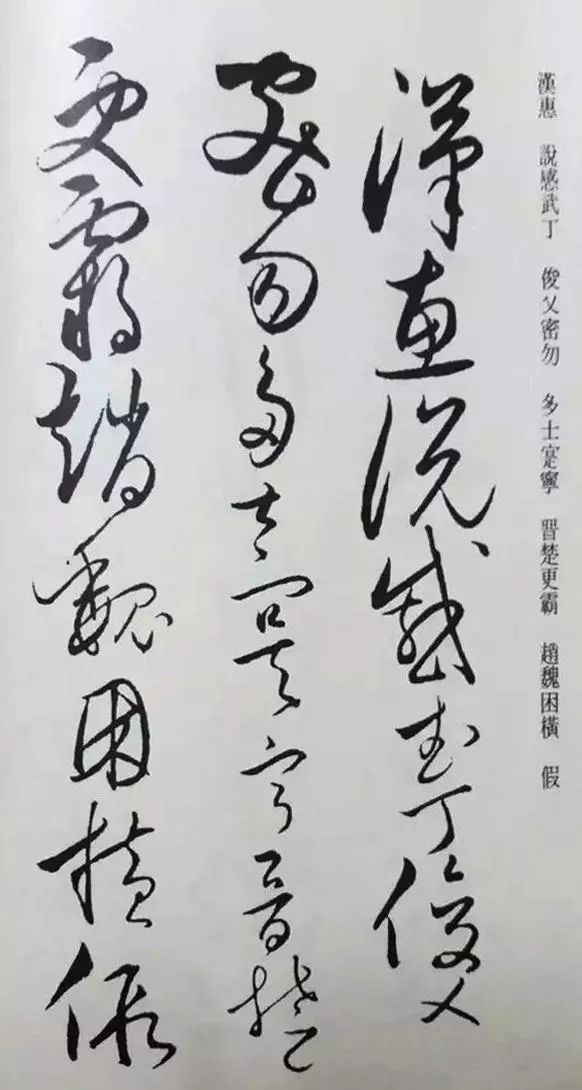 漢惠 說感武丁 俊乂密勿 多士寔寧 晋楚更霸 趙魏困橫 假
漢惠說感武丁俊乂
密勿多士寔寧晋楚
更霸趙魏困橫假